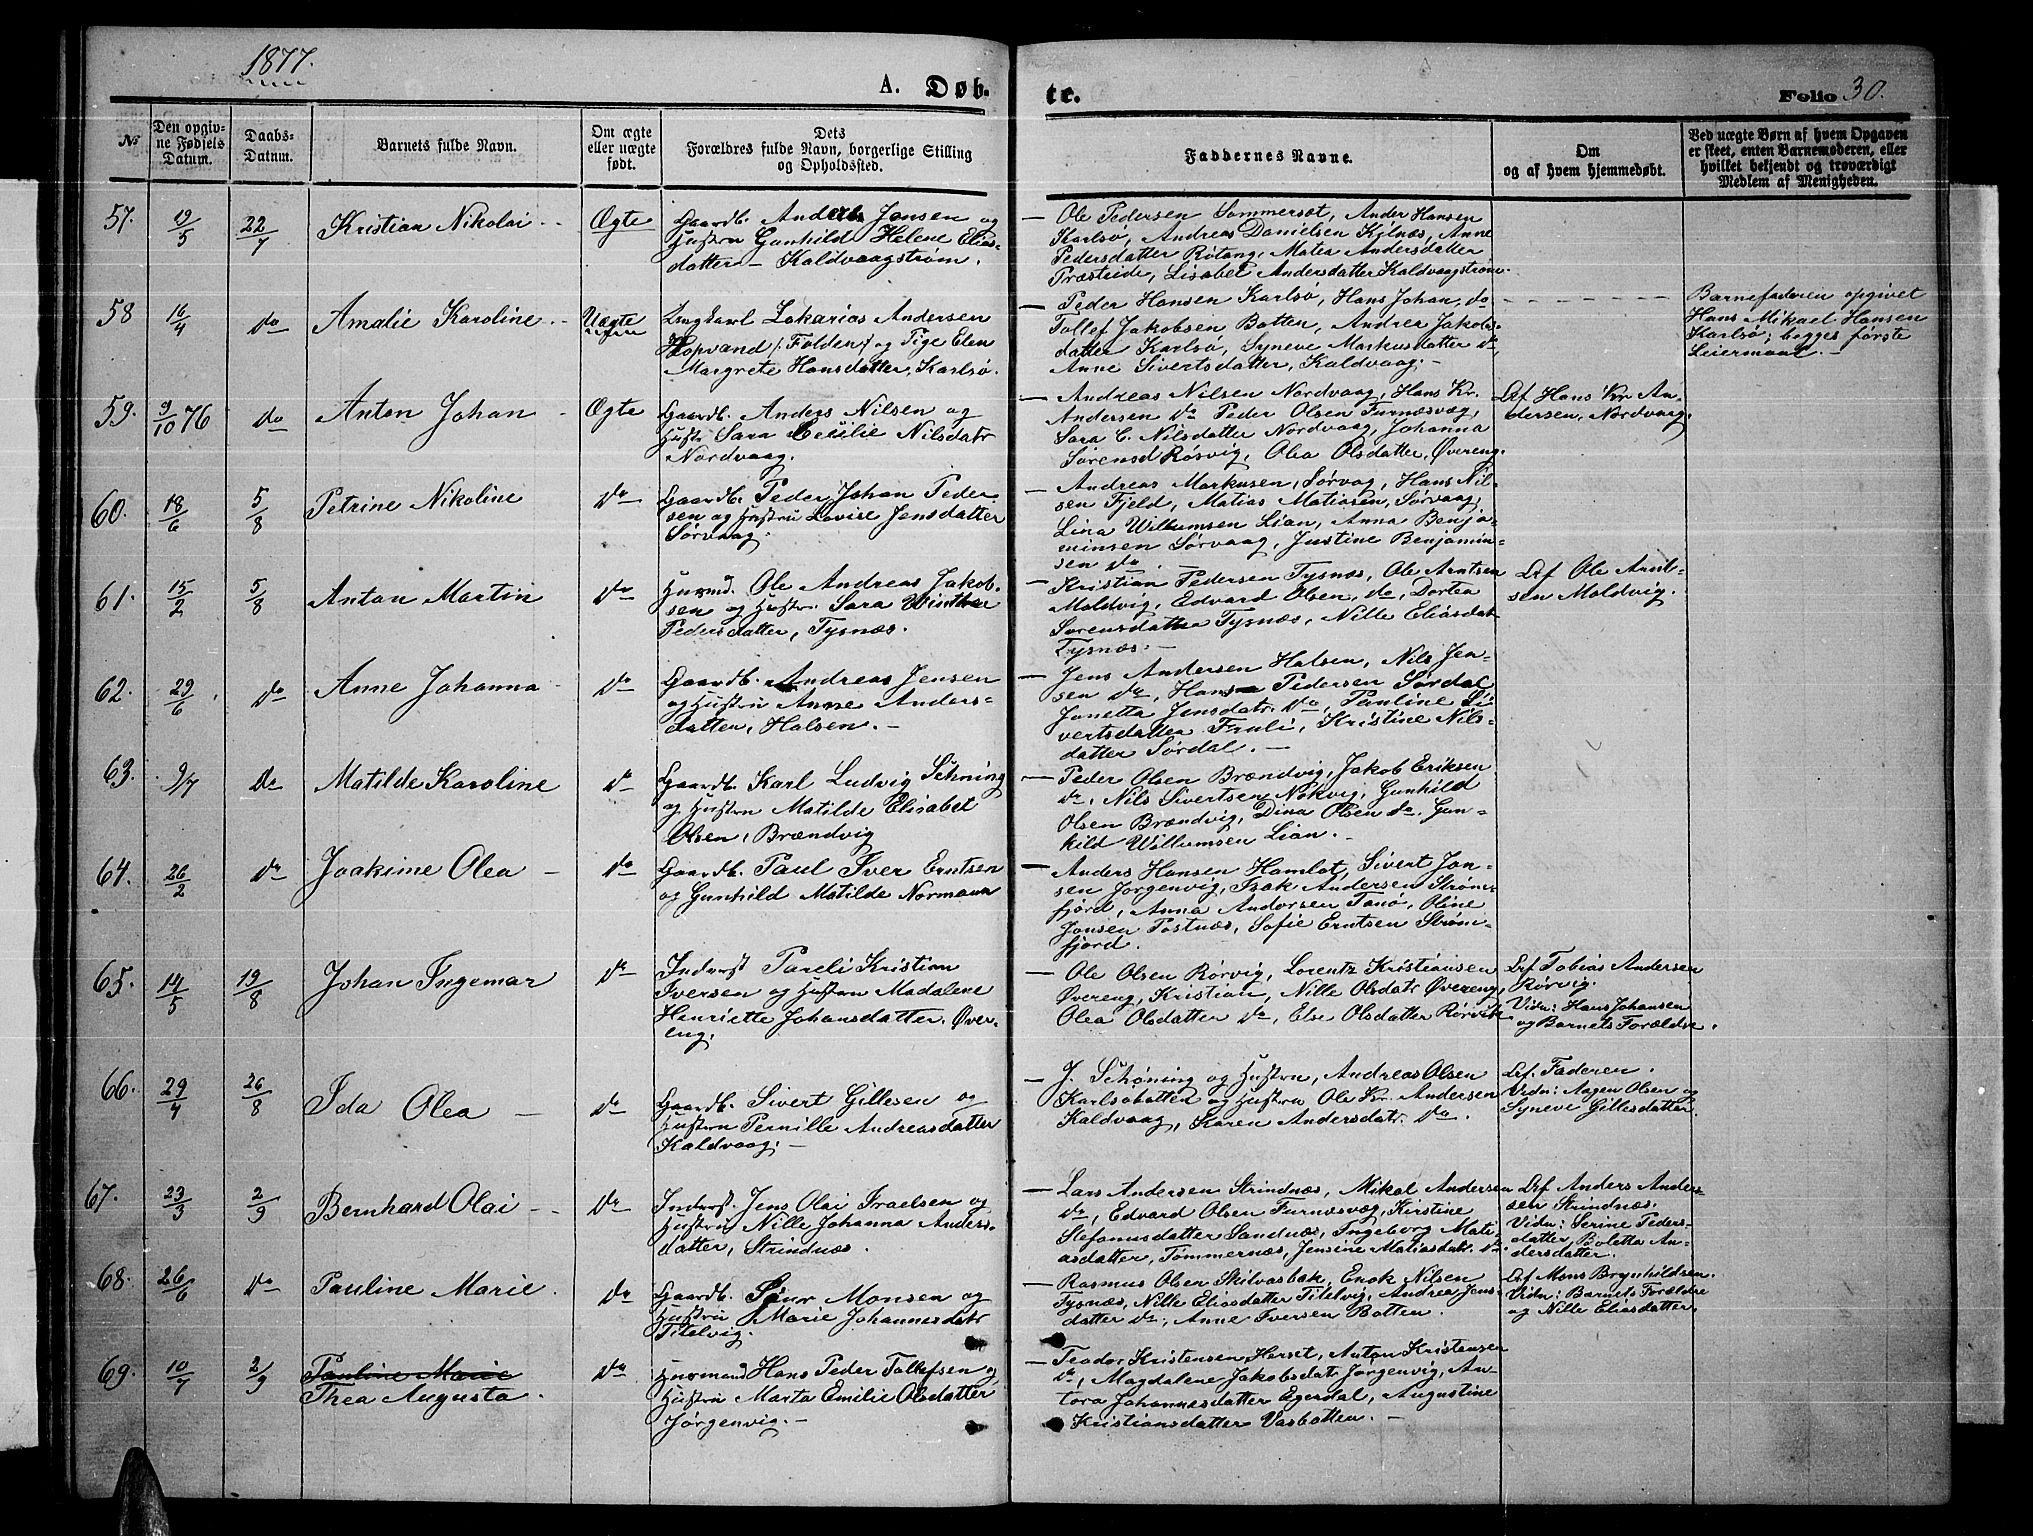 1877.
A. Døb-
te.
Folio 30.
№
Den opgiv-
ne Fødsels
Datum.
Daabs-
Datum.
Barnets fulde Navn.
Om ægte
eller uægte
født.
Dets
Forældres fulde Navn, borgerlige Stilling
og Opholdssted.
Faddernes Navne.
Om
og af hvem hjemmedøbt.
Ved uægte Børn af hvem Opgaven
er skeet, enten Barnemoderen, eller
hvilket bekjendt og troværdigt
Medlem af Menigheden.
57. 19/5 22/7 Kristian Nikolai - Ægte
Gaardb. Anders Jensen og
Hustru Gunhild Helene Elias-
datter - Kaldvaagstrøm.
- Ole Pedersen Sommerset, Ander Hansen
Karlsø, Andreas Danielsen Kilnæs, Anne
Pedersdatter Røtang, Matea Andersdatter
Præsteide, Lisabet Andersdatter Kaldvaagstrøm.
58 16/4 do Amalie Karoline - Uægte
Ungkarl Zakarias Andersen
Hopvand /: Folden :/ og Pige Elen
Margrete Hansdatter, Karlsø.
- Peder Hansen Karlsø, Hans Johan, do
Tollef Jakobsen Botten, Andrea Jakobs-
datter Karlsø, Syneve Markusdatter do,
Anne Sivertsdatter, Kaldvaag -
Barnefaderen opgivet
Hans Mikael Hansen
Karlsø; begges første
Leiermaal. -
59. 9/10 76 do Anton Johan - Ægte
Gaardb. Anders Nilsen og
Hustr Sara Cecilie Nilsdatr
Nordvaag.
- Andreas Nilsen Nordvaag, Hans Kr.
Andersen do Peder Olsen Furnæsvæg,
Sara C. Nilsdatter Nordvaag, Johanna
Sørensd Røsvig, Olea Olsdatter, Øvereng.
Af Hans Kr. An-
dersen, Nordvaag.
60. 18/6 5/8 Petrine Nikoline do
Gaardb. Peder Johan Peder
sen og Hustru Lovise Jensdatter
Sørvaag.
- Andreas Markusen, Sørvag, Hans Nil-
sen Fjeld, Matias Matiasen, Sørvaag,
Lina Willumsen Lian, Anna Benja-
minsen Sørvaag, Justine Benjamin-
sen do.
61. 15/2 5/8 Anton Martin do
Husmd. Ole Andreas Jakob-
sen og Hustru. Sara Winther
Pedersdatter, Tysnæs.
- Kristian Pedersen Tysnæs, Ole Arntsen
Moldvig, Edvard Olsen, do, Dortea
Sørensdatter Tysnæs, Nille Eliasdatr
Tysnæs. -
Af Ole Arnt-
sen Moldvig.
62. 29/6 do Anne Johanna - do
Gaardb. Andreas Jensen
og Hustru Anne Anders-
datter, Halsen. -
- Jens Andersen Halsen, Nils Jen-
sen do, Hans Pedersen Sørdal
Janetta Jensdatr. do, Pauline Si
vertsdatter Fruli, Kristine Nils-
datter Sørdal. -
63. 9/7 do Matilde Karoline do
Gaardb. Karl Ludvig Schning
og Hustru Matilde Elisabet
Olsen, Brændvig
- Peder Olsen Brændvig, Jakob Eriksen
do. Nils Sivertsen Nøkvig, Gunhild
Olsen Brændvig, Dina Olsen do. Gun-
hild Willumsen Lian. -
64. 26/2 do Joakime Olea - do
Gaardb. Paul Iver Erntsen
og Gunhild Matilde Normann
- Anders Hansen Hamlot, Sivert Jan-
sen Jørgenvig, Isak Andersen Strøm-
fjord, Anna Andersen Tanø, Oline
Jansen Tostnæs, Sofie Erntsen Strøm-
fjord.
65. 14/5 19/8 Johan Ingemar do
Inderst Pareli Kristian
Iversen og Hustru Madalene
Henriette Johansdatter. Øver-
eng.
- Ole Olsen Rørvig, Lorentz Kristiansen
Øvereng, Kristian, Nille Olsdatr Øvereng,
Olea Olsdatter do, Else Olsdatter Rørvik
Af Tobias Andersen
Rørvig.
Vidn: Hans Johansen
og Barnets Forældre.
66. 29/4 26/8 Ida Olea - do
Gaardb. Sivert Gillesen og
Hustru Pernille Andreasdatter
Kaldvaag. -
- J. Schøning og Hustru, Andreas Olsen
Karlsøbotten og Hustru Ole Kr. Andersen
Kaldvaag, Karen Andersdatr. do.
Af. Faderen.
Vidn: Aagen Olsen og
Syneve Gillesdatter.
67. 23/3 2/9 Bernhard Olai - - do
Inderst. Jens Olai Israelsen og
Hustru Nille Johanna Anders-
datter, Strindnæs.
- Lars Andersen Strindnæs, Mikal Andersen
do, Edvard Olsen Furnæsvæg, Kirstine
Stefanusdatter Sandnæs, Ingeborg Mati
asdatter, Tømmernæs, Jensine Matiasdatr. do.
Af Anders Ander-
sen Strindnæs.
Vidn: Serine Peders-
datter, Boletta An-
dersdatter.
68. 26/6 do Pauline Marie. do
Gaardb. Sjur Monsen og
Hustru Marie Johannesdatr
Titelvig.
- Rasmus Olsen Skilvasbak, Enok Nilsen
Tysnæs, Nille Eliasdatter Titelvig, Andrea Jens-
datter do., Anne Iversen Botten.
Af Mons Brynhildsen.
Vidn: Barnets Forældre
og Nille Eliasdatter.
69. 10/7 2/9 Pauline Marie
Thea Augusta. do
Husmand Hans Peder Tollefsen og
Hustru Marta Emilie Olsdatter
Jørgenvig. -
- Teodor Kristensen Herset, Anton Kristensen
do, Magdalene Jakobsdatr Jørgenvig, An-
tora Johannesdatter Egerdal, Augustine
Kristiansdatter Vasbotten. -